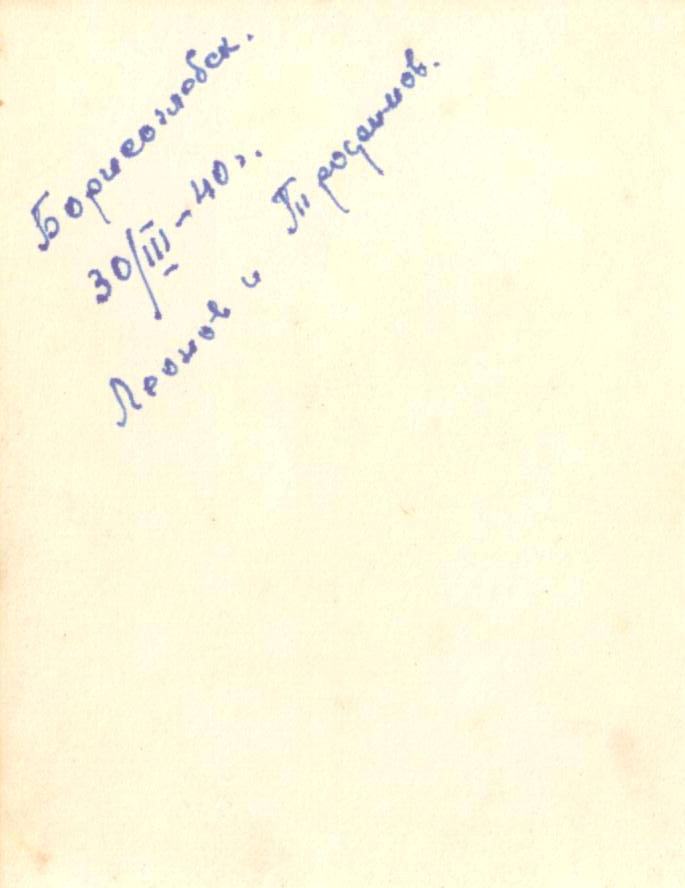 Борисоглебск.
30/III-40г.
Леонов и